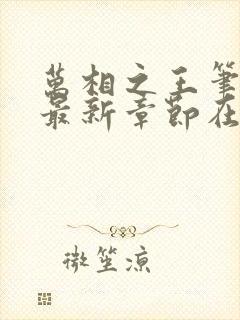 萬相之王筆
最新章節在
微笙涼